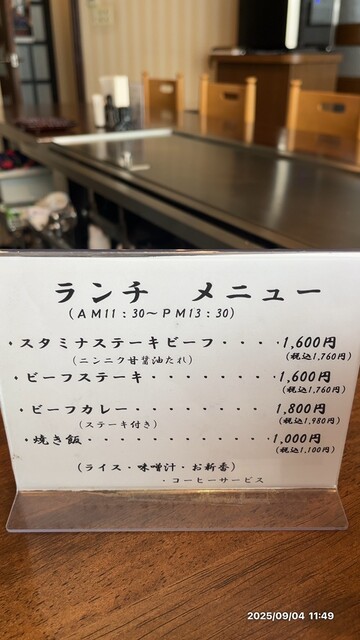 ランチ メニュー
(AM11:30~PM13:30)
・スタミナステーキビーフ・・・・1,600円
(ニンニク甘醤油たれ) (税込1,760円)
・ビーフステーキ・・・・・・・・・・1,600円
(税込1,760円)
・ビーフカレー・・・・・・・・・・1,800円
(ステーキ付き) (税込1,980円)
・焼き飯・・・・・・・・・・・・・・1,000円
(税込1,100円)
(ライス・味噌汁・お新香)
・コーヒーサービス
2025/09/04 11:49